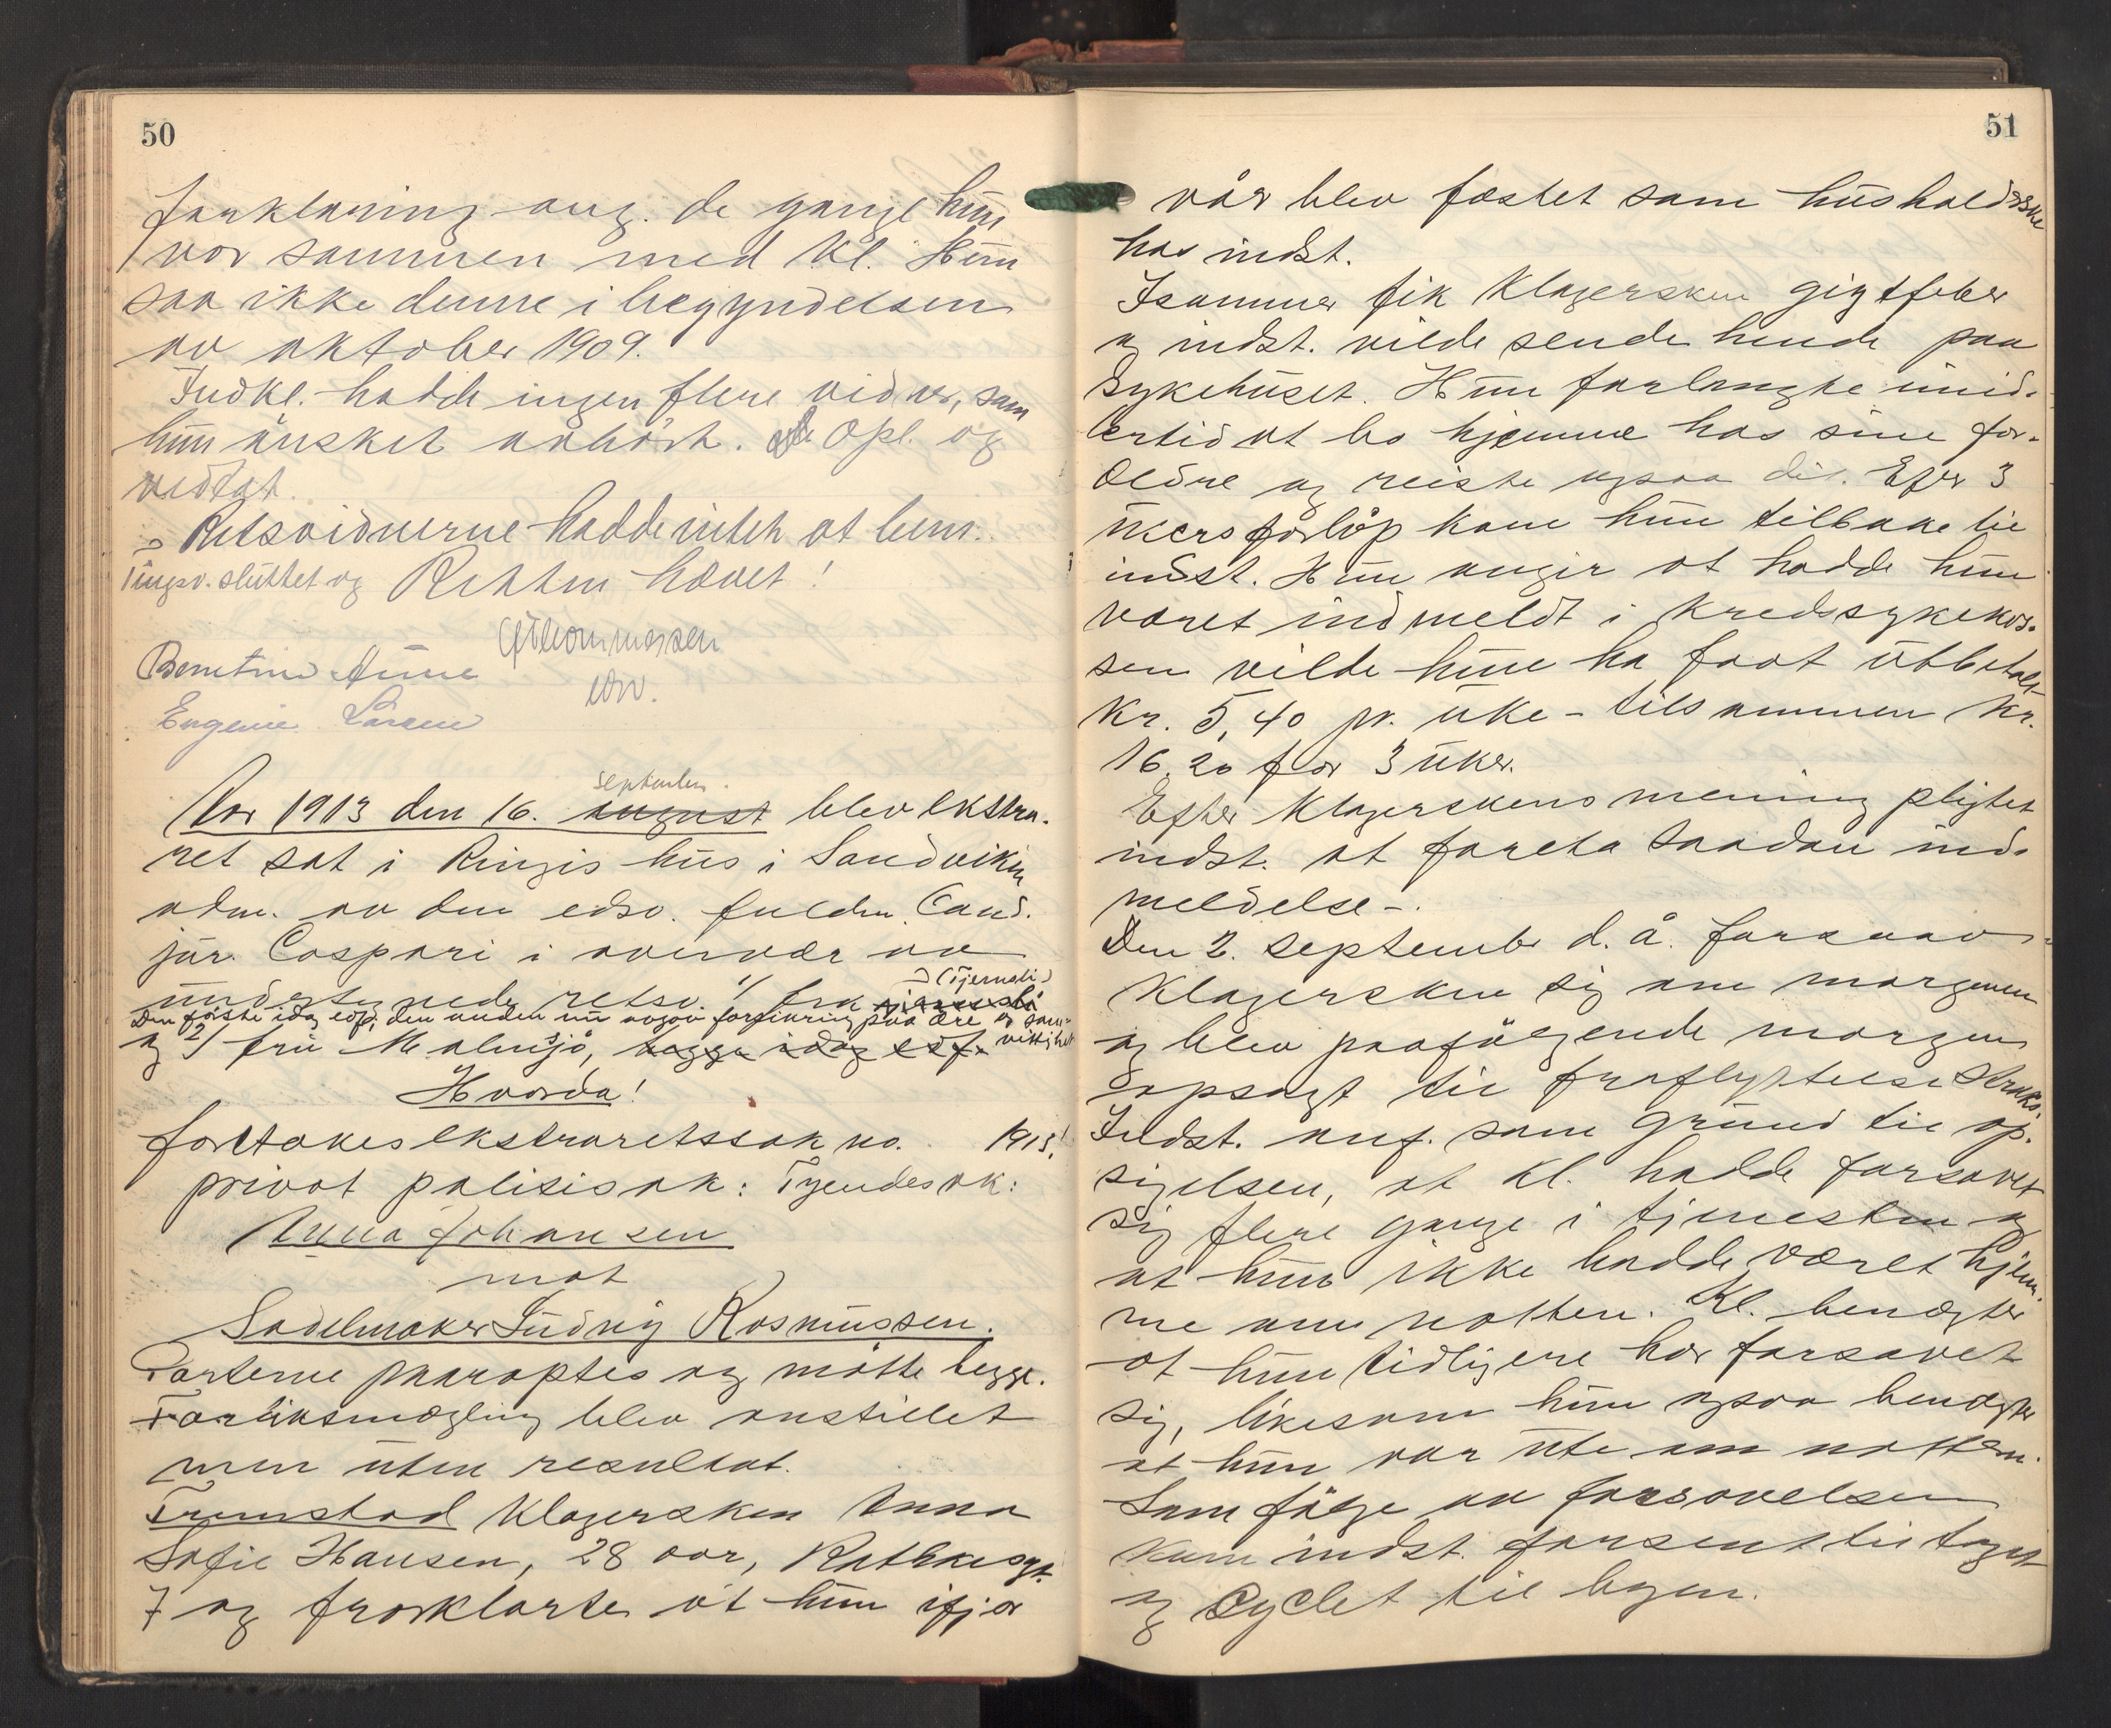 50
forklaring ang. de gange hun
var sammen med kl. Hun
saa ikke denne i begyndelsen
av oktober 1909.
Indkl. hadde ingen flere vidner, som
hun ønsket avhørt. Opl. og
vedtat.
Retsvidnerne hadde intet at bem.
Tingsv. sluttet og Retten hævet!
edsv.
Berntine Aune
Eugenie Larsen
september.
Aar 1913 den 16. august blev ekstra-
ret sat i Ringis hus i Sandviken
adm. av den edsv. fuldm. Cand.
jur. Caspari i overvær av
(Tjernsli)
undertegnede retsv. 1/ fru
Den første idag edf, den anden nu avgav forsikring paa ære og sam-
vittighet
og 2/ fru Malmsjø, begge idag edf.
Hvorda!
foretakes ekstraretssak no. 1913!
privat politisak: Tyendesak:
Anna Johansen
mot
Sadelmaker Ludvig Rasmussen.
Parterne paaroptes og møtte begge.
Forliksmægling blev anstillet
men uten resultat.
Fremstod klagersken Anna
Sofie Hansen, 28 aar, Rathkesgt.
7 og forklarte at hun ifjor
51
vår blev fæstet som husholderske
hos indst.
Isommer fik klagersken gigtfeber
og indst. vilde sende hende paa
sykehuset. Hun forlangte imid-
lertid at bo hjemme hos sine for-
ældre og reiste ogsaa dit. Efter 3
ukers forløp kom hun tilbake til
indst. Hun angir at hadde hun
været indmeldt i kredssykekas-
sen vilde hun ha faat utbetalt
kr. 5,40 pr. uke - tilsammen kr.
16.20 for 3 uker.
Efter klagerskens mening pligtet
indst. at foreta saadan ind-
meldelse -.
Den 2. september d. å. forsov
klagersken sig om morgenen
og blev paafølgende morgen
opsagt til fraflyttelse straks.
Indst. anf. som grund til op-
sigelsen, at kl. hadde forsovet
sig flere gange i tjenesten og
at hun ikke hadde været hjem-
me om natten. Kl. benægter
at hun tidligere har forsovet
sig, likesom hun ogsaa benægter
at hun var ute om natten.
Som følge av forsovelsen
kom indst. forsent til toget
og cyclet til byen.